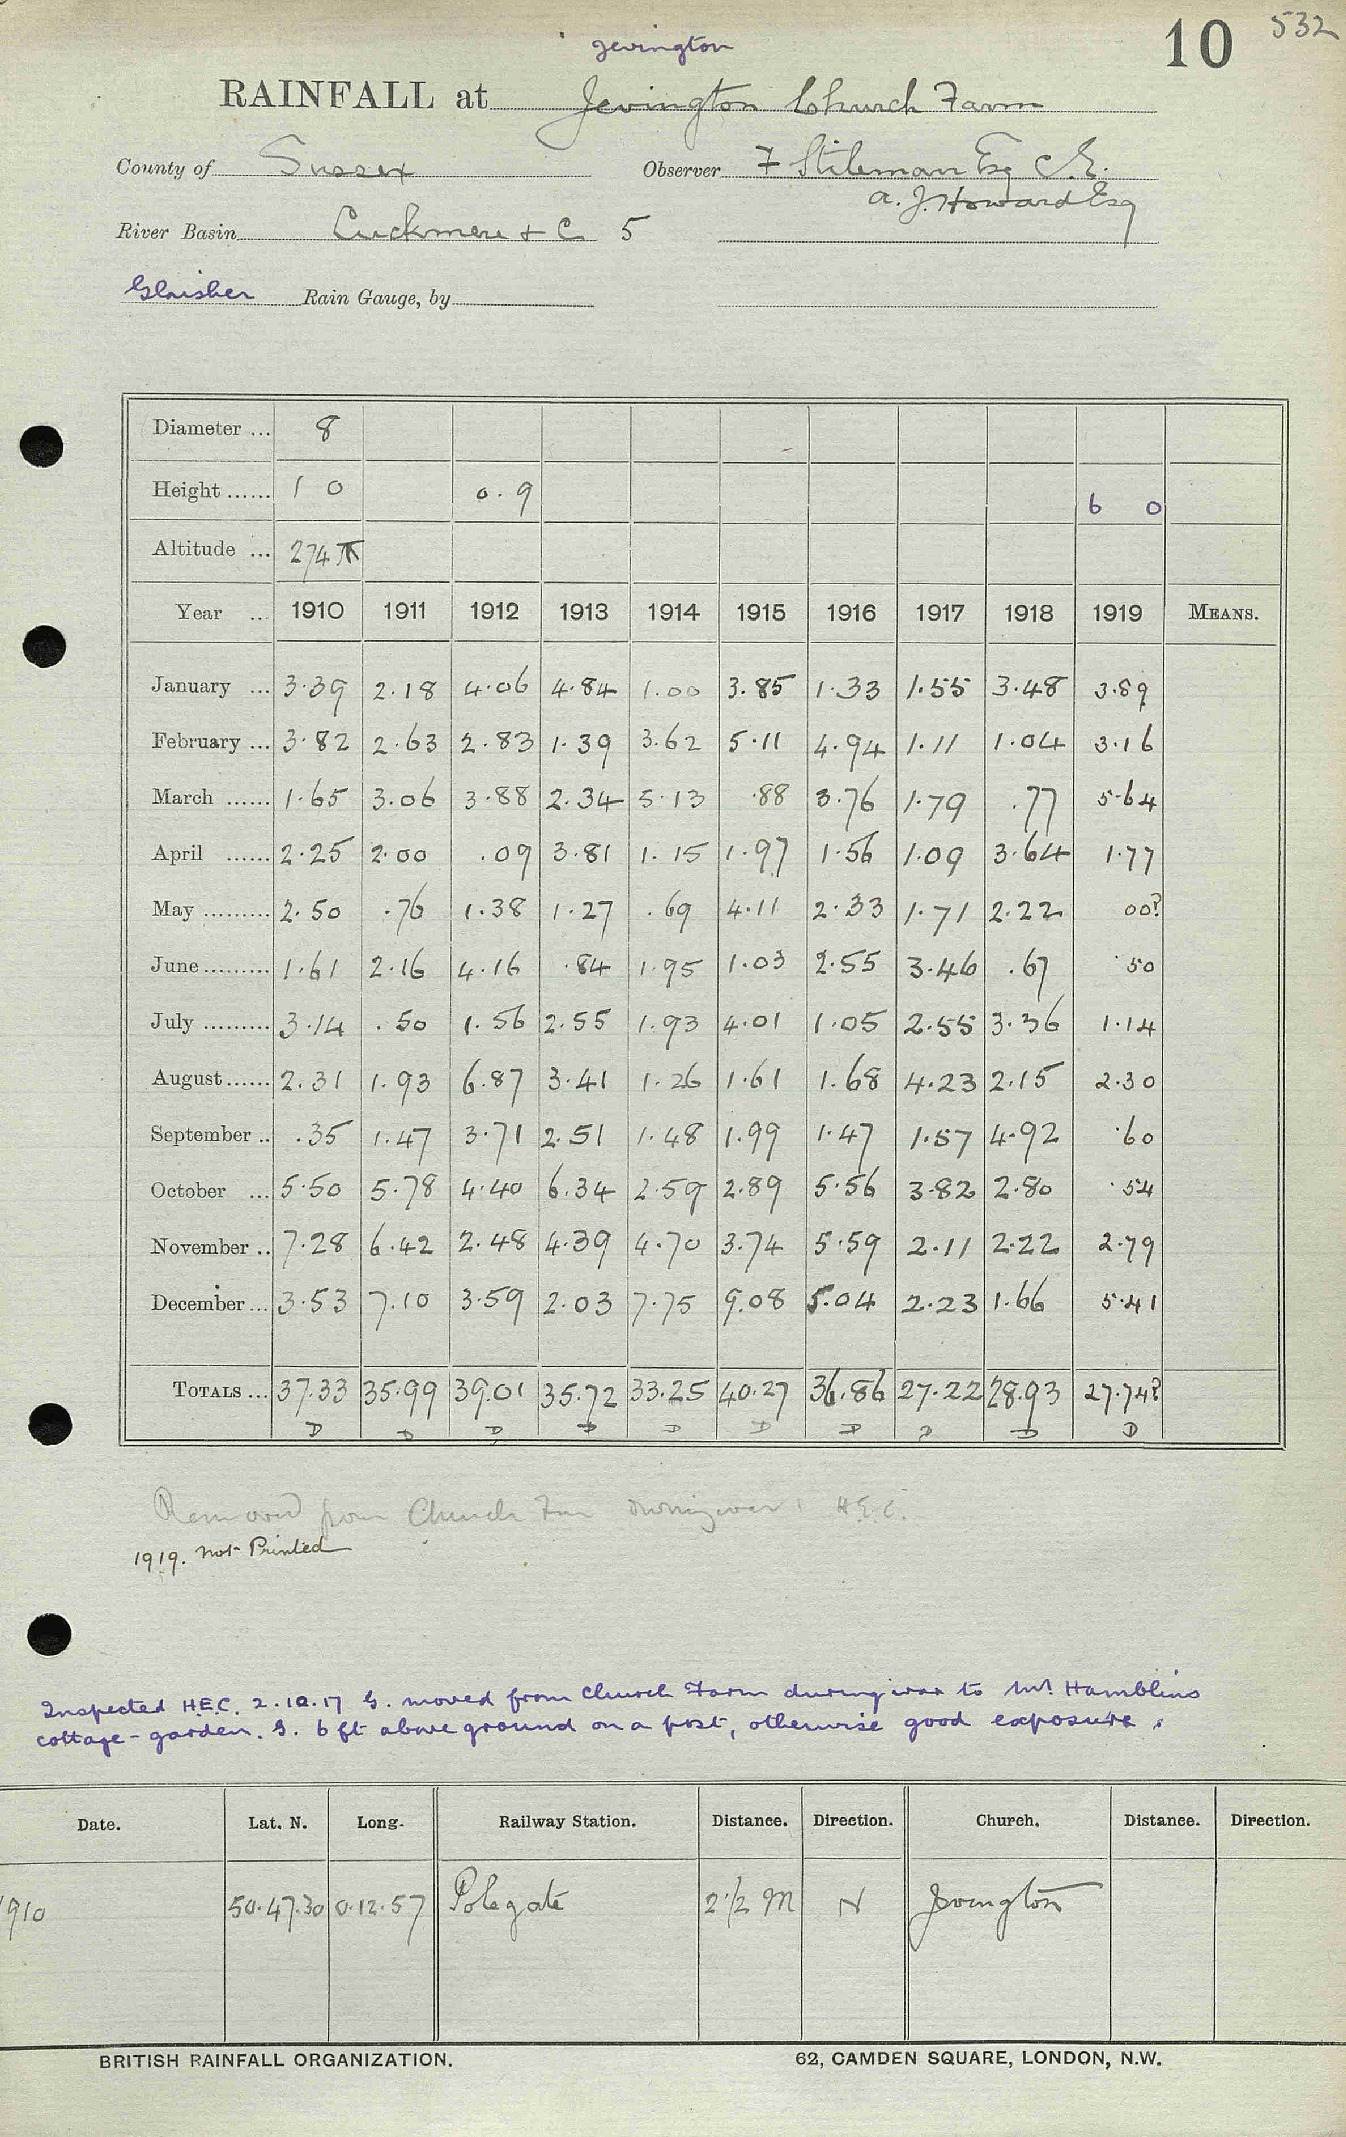 10 532
Jevington
RAINFALL at Jevington Church Farm
County of Sussex Observer F Stileman Esq C.E.
A. J. Howard Esq
River Basin Cuckmere & C 5
Glaisher Rain Gauge, by
Diameter ... 8
Height ...... 1 0 0.9 6 0
Altitude ... 274
Year ... 1910 1911 1912 1913 1914 1915 1916 1917 1918 1919 MEANS.
January ... 3.39 2.18 4.06 4.84 1.00 3.85 1.33 1.55 3.48 3.89
February ... 3.82 2.63 2.83 1.39 3.62 5.11 4.94 1.11 1.04 3.16
March ...... 1.65 3.06 3.88 2.34 5.13 .88 3.76 1.79 .77 5.64
April ...... 2.25 2.00 .09 3.81 1.15 1.97 1.56 1.09 3.64 1.77
May ......... 2.50 .76 1.38 1.27 .69 4.11 2.33 1.71 2.22 00?
June ......... 1.61 2.16 4.16 .84 1.95 1.03 2.55 3.46 .67 .50
July ......... 3.14 .50 1.56 2.55 1.93 4.01 1.05 2.55 3.36 1.14
August ...... 2.31 1.93 6.87 3.41 1.26 1.61 1.68 4.23 2.15 2.30
September .. .35 1.47 3.71 2.51 1.48 1.99 1.47 1.57 4.92 .60
October ... 5.50 5.78 4.40 6.34 2.59 2.89 5.56 3.82 2.80 .54
November .. 7.28 6.42 2.48 4.39 4.70 3.74 5.59 2.11 2.22 2.79
December ... 3.53 7.10 3.59 2.03 7.75 9.08 5.04 2.23 1.66 5.41
TOTALS ... 37.33 35.99 39.01 35.72 33.25 40.27 36.86 27.22 28.93 27.74?
D D D D D D D D D D
Removed from Church Fm during war! H.E.C.
1919. not Printed
Inspected H.E.C. 2.10.17 G. moved from Church Farm during war to Mr. Hamblins
cottage-garden. G. 6 ft above ground on a post, otherwise good exposure.
Date. Lat. N. Long. Railway Station. Distance. Direction. Church. Distance. Direction.
1910 50.47.30 0.12.57 Polegate 2 1/2 M N Jevington
BRITISH RAINFALL ORGANIZATION. 62, CAMDEN SQUARE, LONDON, N.W.